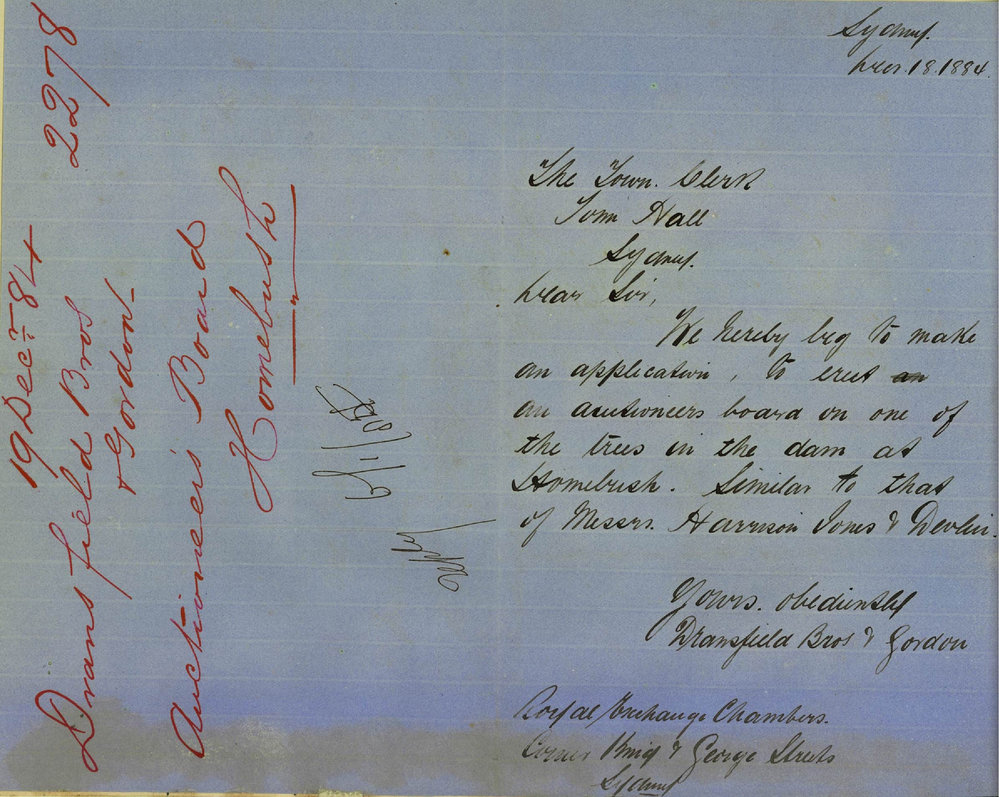 Sydney.
Decr. 18. 1884.
The Town. Clerk
Town Hall
Sydney.
Dear Sir,
We hereby beg to make
an application, to erect an
an acutioneers board on one of
the trees in the dam at
Homebush. Similar to that
of Messrs. Harrison Jones & Devlin.
Yours. obediently
Dransfield Bros & Gordon
Royal Exchange Chambers.
Corner King & George Streets
Sydney
19 Decr 84 2278
Dransfield Bros
& Gordon
Auctioneers' Board
Homebush